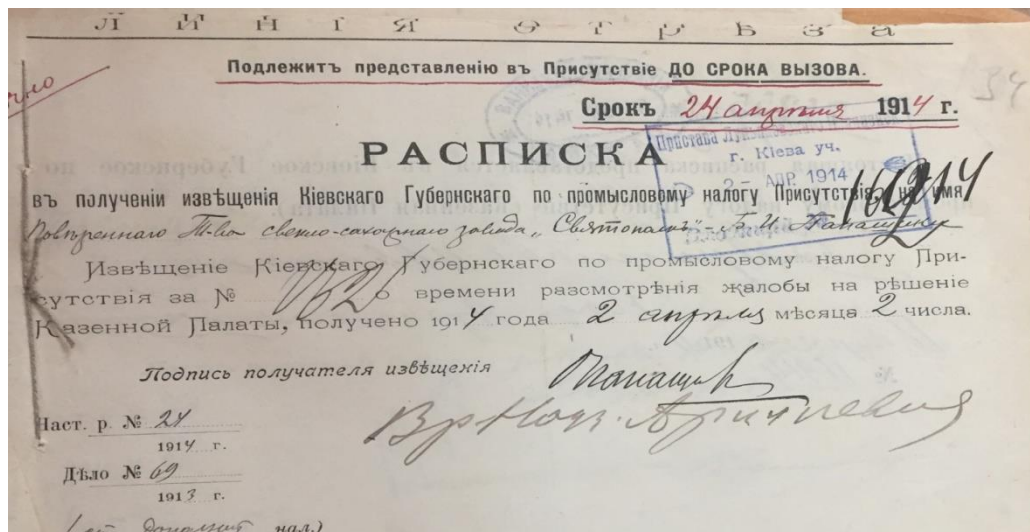 ЛИНІЯ ОТРѢЗА
Подлежитъ представленію въ Присутствіе ДО СРОКА ВЫЗОВА.
Срокъ 24 апрѣля 1914 г.
г. Кіева уч.
2 АПР. 1914
РАСПИСКА
въ полученіи извѣщенія Кіевскаго Губернскаго по промысловому налогу Присутствія на имя
Повѣреннаго Т-ва свекло-сахарнаго завода „
Извѣщеніе Кіевскаго Губернскаго по промысловому налогу При-
сутствія за № о времени разсмотрѣнія жалобы на рѣшеніе
Казенной Палаты, получено 1914 года 2 апрѣля мѣсяца 2 числа.
Подпись получателя извѣщенія
Наст. р. № 24
1914 г.
Дѣло № 69
1913 г.
нал.)